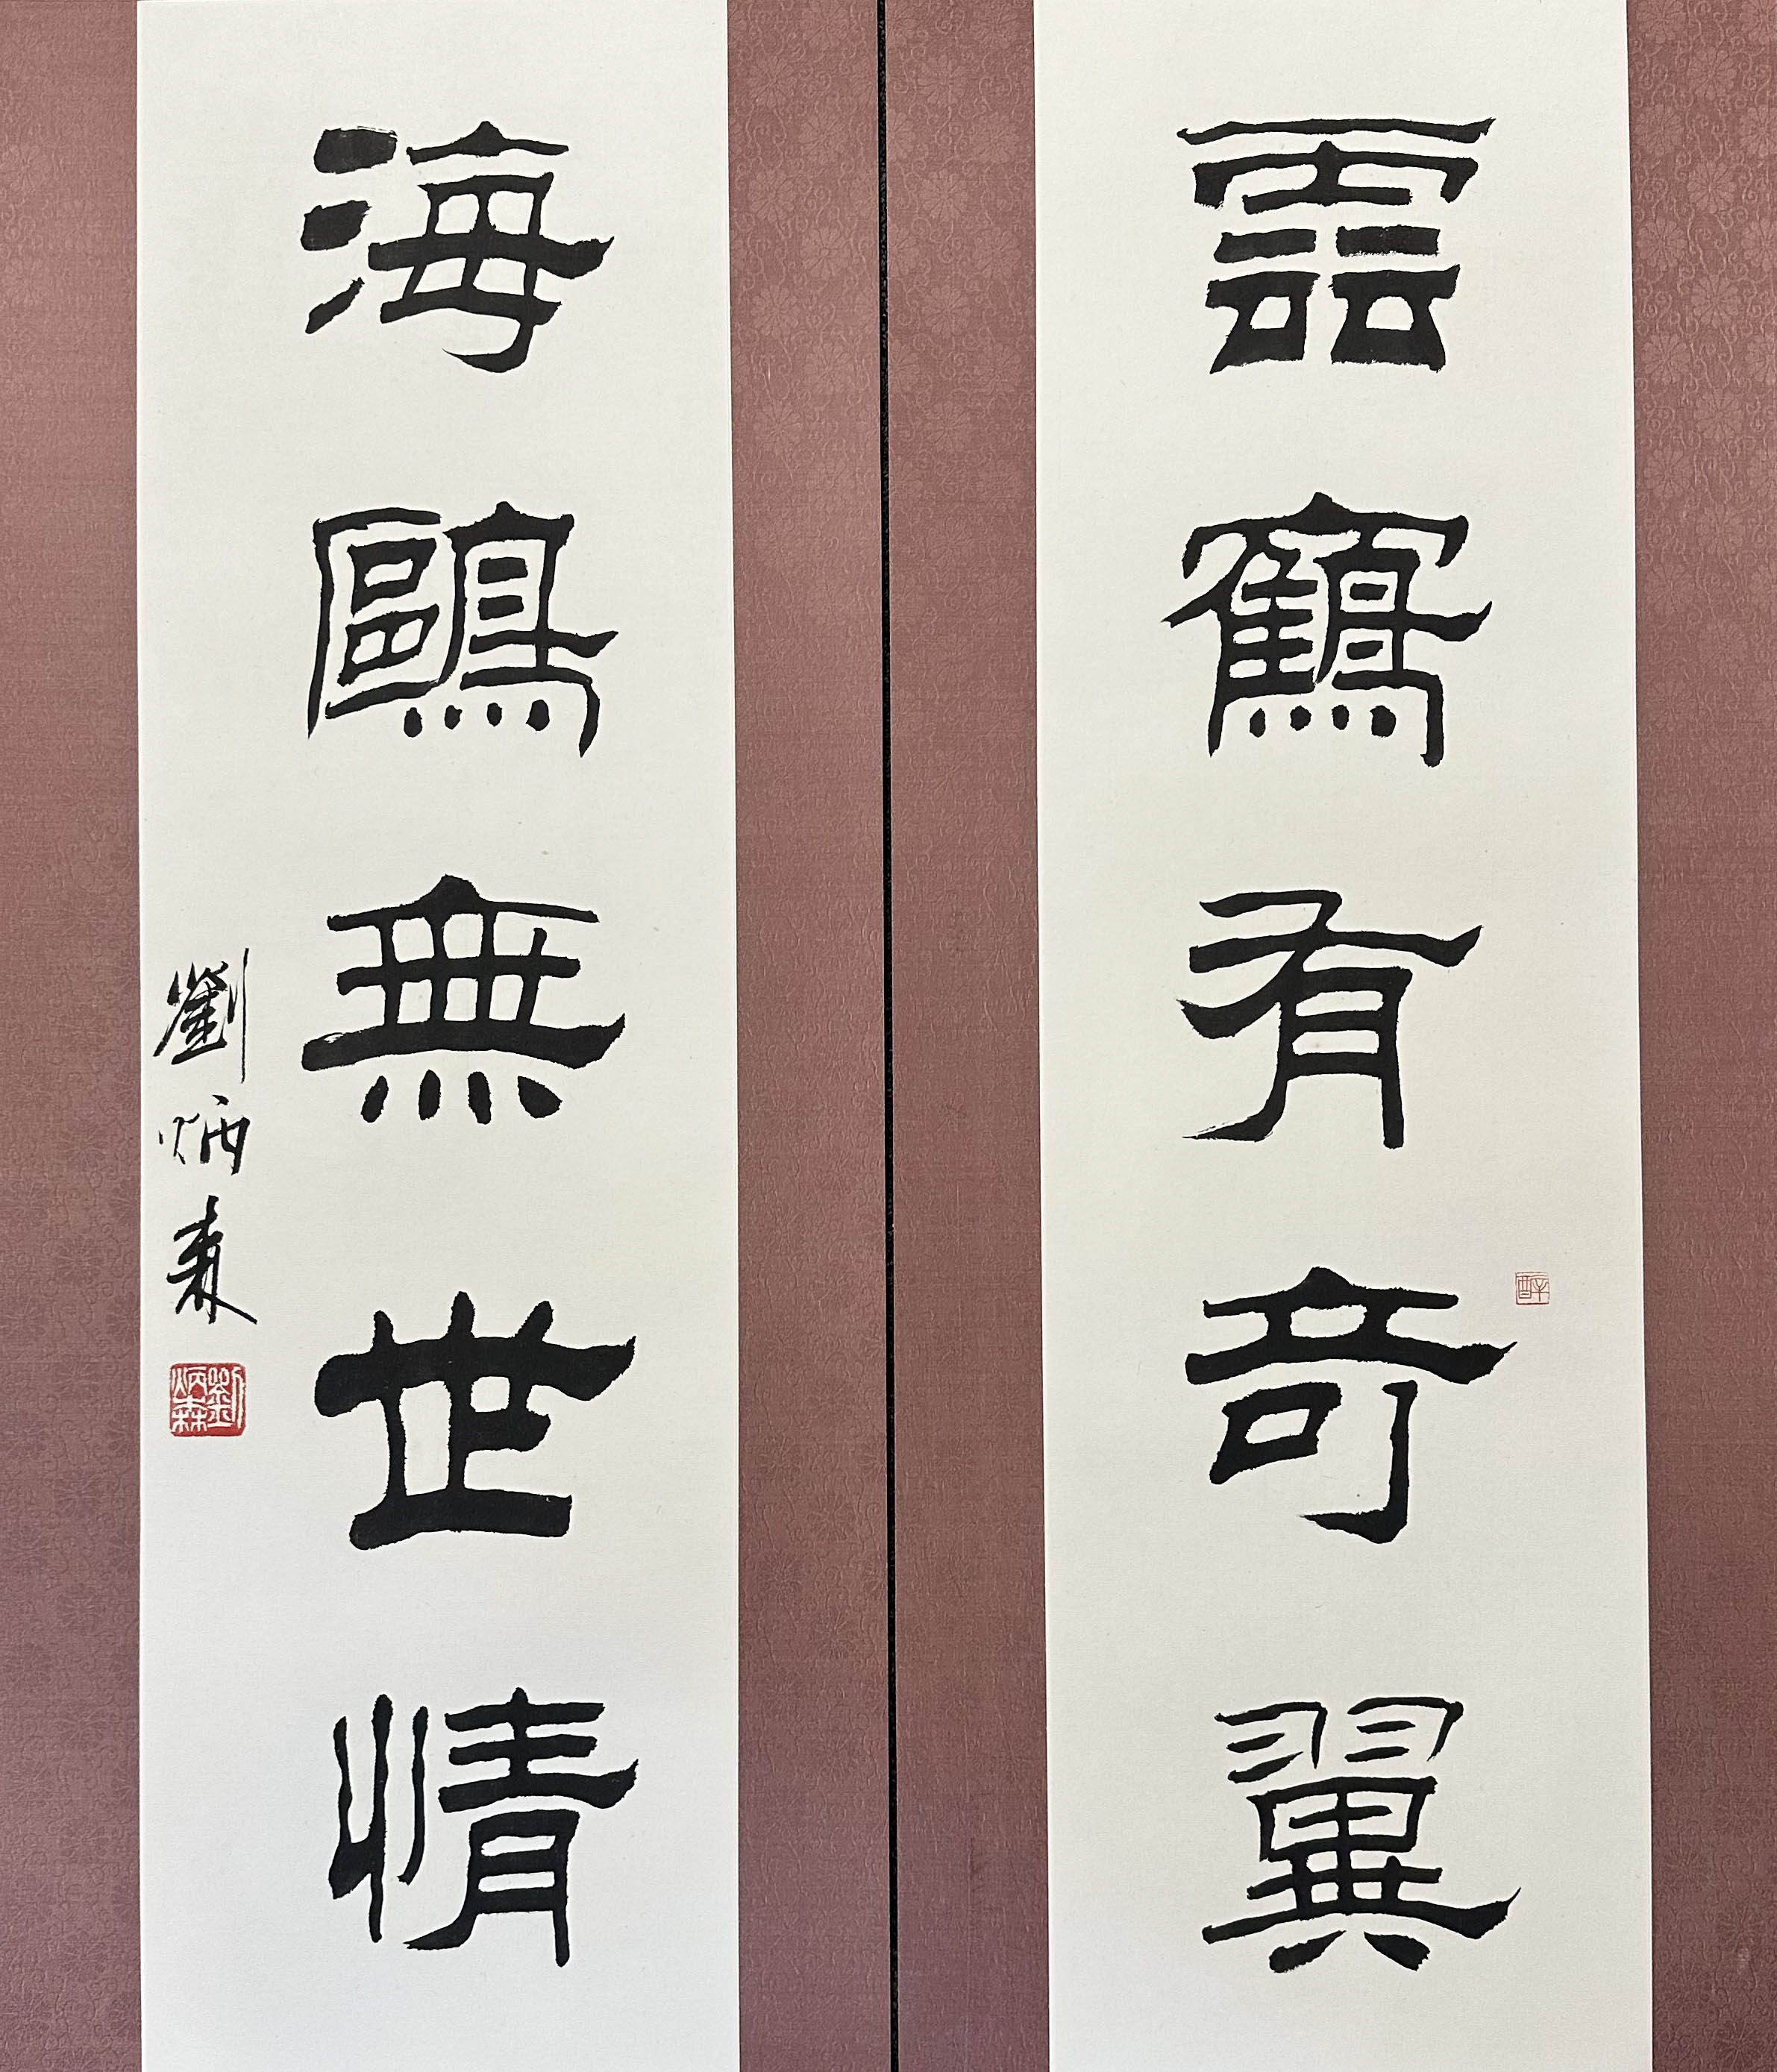 雲鶴有奇翼
海鷗無世情
劉炳森
劉炳森